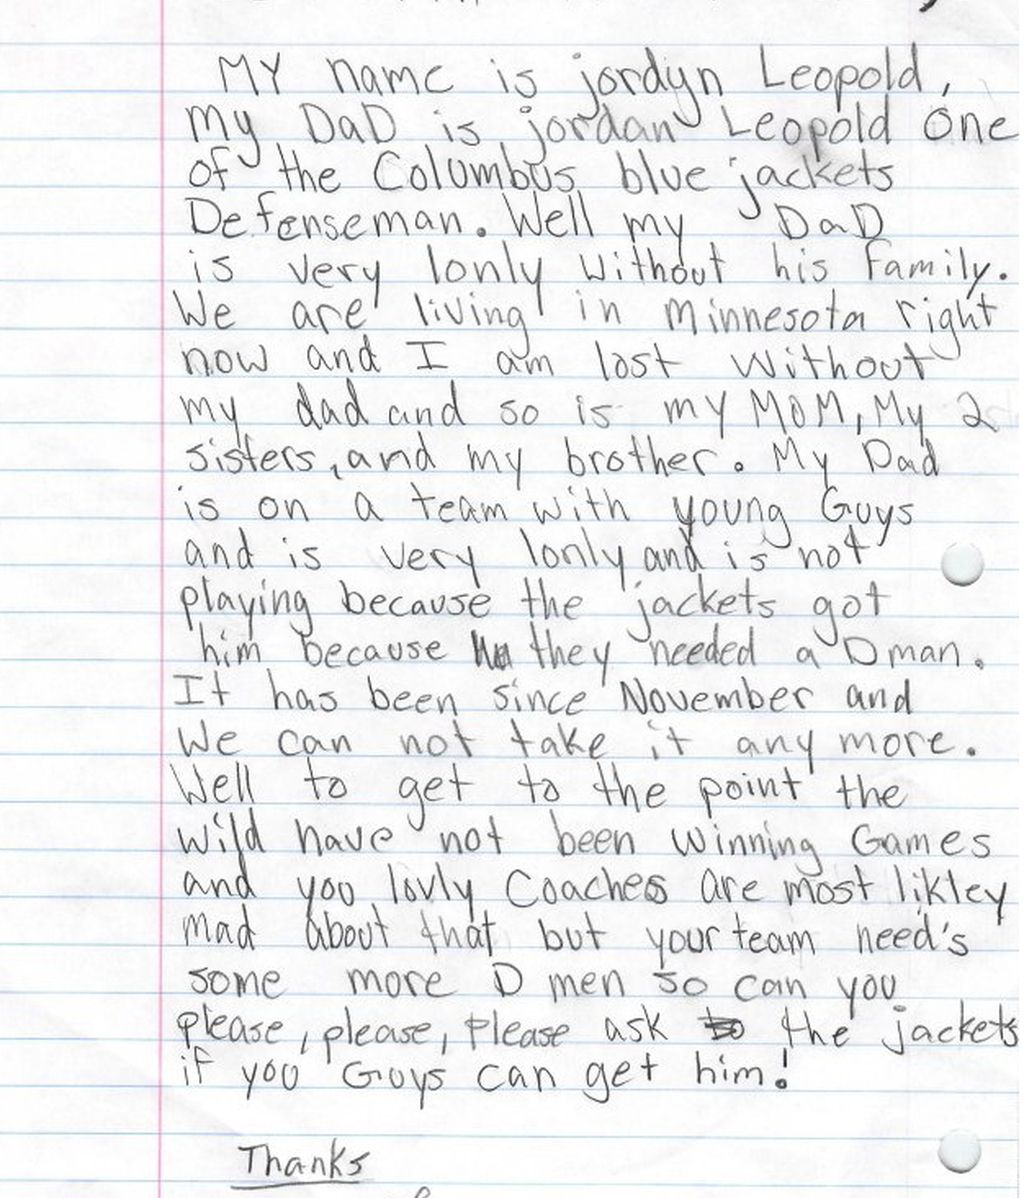 MY name is jordyn Leopold,
my DaD is jordan Leopold one
of the Columbus blue jackets
Defenseman. Well my DaD
is very lonly without his family.
We are living in Minnesota right
now and I am lost without
my dad and so is my MOM, My 2
sisters, and my brother. My Dad
is on a team with young Guys
and is very lonly and is not
playing because the jackets got
him because they needed a D man.
It has been since November and
We can not take it any more.
Well to get to the point the
wild have not been winning Games
and you lovly Coaches are most likley
mad about that but your team need's
some more D men so can you
please, please, Please ask the jackets
if you Guys can get him!
Thanks